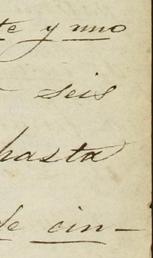 te y uno
seis
hasta
de cin-